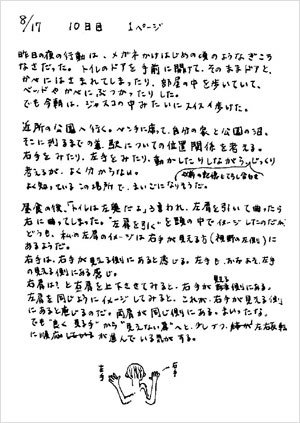 8/17 10日目 1ページ
昨日の夜の行動は、メガネかけはじめの頃のようなぎこち
なさだった。トイレのドアを手前に開けて、そのままドアと、
かべにはさまれてしまったり、部屋の中を歩いていて、
ベッドやかべにぶつかったりした。
でも今朝は、ジャスコの中みたいにスイスイ歩けた。
近所の公園へ行く。ベンチに座って、自分の家と公園の沼、
そこに到るまでの道、駅についての位置関係を考える。
右手をみたり、左手をみたり、動かしたりしながらじっくり
考えるが、よく分からない。
の記憶とてらし合わせ
よく知っているこの場所で、まいごになりそうだ。
昼食の後、「トイレは左奥だよ」と言われ、左肩を引いて曲ったら
右に曲ってしまった。"左肩を引く"を頭の中でイメージしたのだが、
どうも、私の左肩のイメージは右手が見える方（視野の左側）に
あるようだ。
右手は、右手が見える側にあると感じる。左手も、おなじよ、左手
の見える側にある感じ。
右肩は？と右肩を上下させてみると、右手が見える側にある。
左肩を同じようにイメージしてみると、これが、右手が見える側
にあると感じるのだ。両肩が同じ側にある。まいったな。
でも"良く見る手"から"見えない肩"へと、少しずつ、が左右反転
に順応が進んでいる気がする。
左手
右手